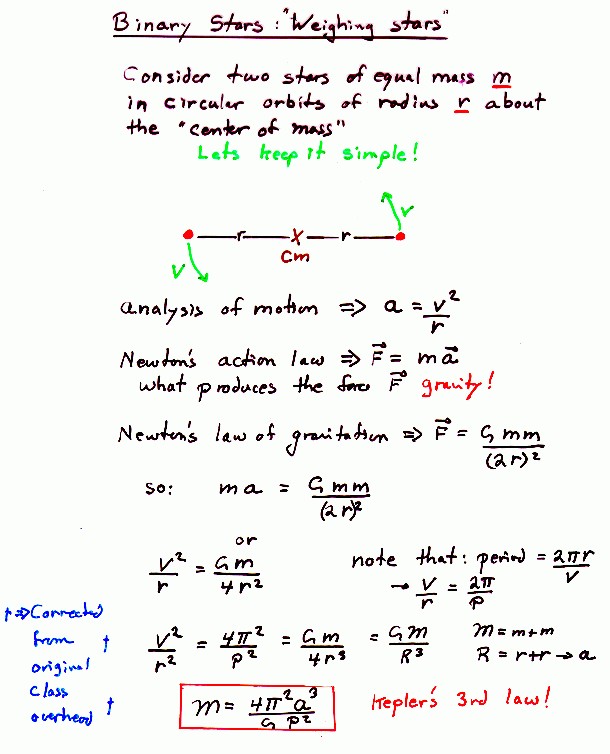 Binary Stars: "Weighing stars"
Consider two stars of equal mass m
in circular orbits of radius r about
the "center of mass"
Lets keep it simple!
v r X r v
cm
analysis of motion ⇒ a = v²/r
Newton's action law ⇒ F⃗ = ma⃗
what produces the force F⃗ gravity!
Newton's law of gravitation ⇒ F⃗ = Gmm/(2r)²
so: ma = Gmm/(2r)²
or
v²/r = Gm/4r² note that: period = 2πr/v
→ v/r = 2π/P
†⇒Corrected
from †
original
class †
overhead
v²/r² = 4π²/P² = Gm/4r³ = GM/R³ M = m+m
R = r+r → a
M = 4π²a³/GP² Kepler's 3rd law!